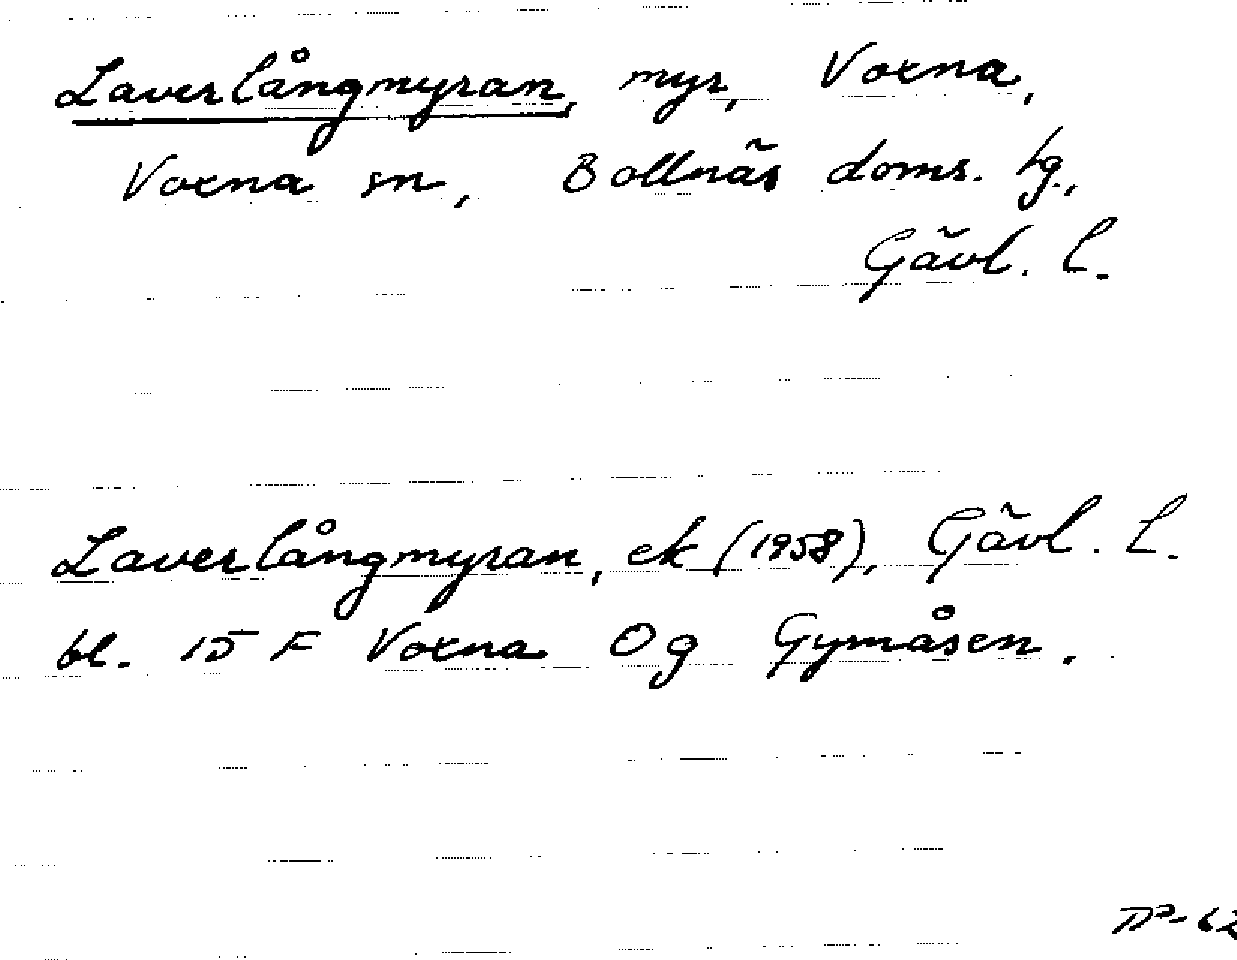 Laverlångmyran, myr, Voxna,
Voxna sn, Bollnäs doms. hg.,
Gävl. l.
Laverlångmyran, ek (1958), Gävl. l.
bl. 15 F Voxna 0g Gymåsen.